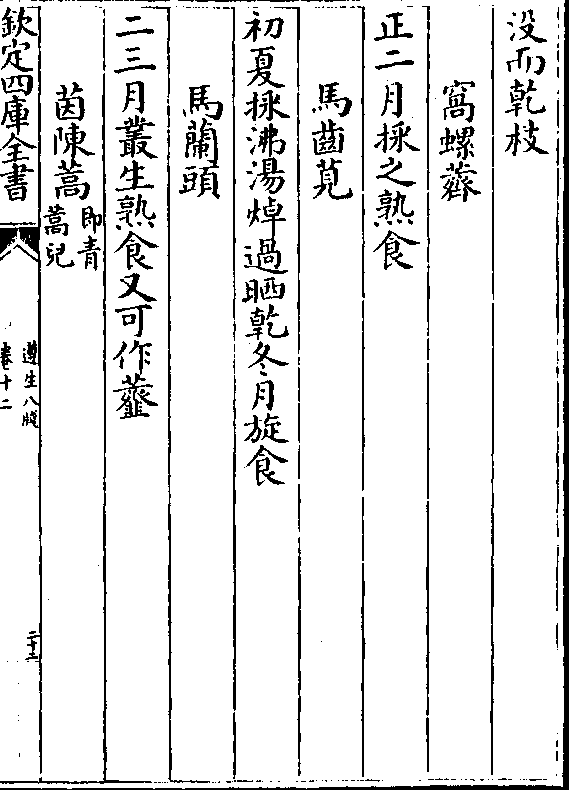 没而乾枝
窩螺薺
正二月採之熟食
馬齒莧
初夏採沸湯焯過晒乾冬月旋食
馬蘭頭
二三月叢生熟食又可作虀
茵陳蒿即青蒿兒
欽定四庫全書
遵生八牋
卷十二
二十二